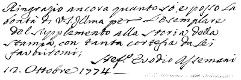 Ringrazio ancora quanto so e posso la
bontà di VS Illma per l'Esemplare
del Supplemento alla storia della
stampa, con tanta cortesia da lei
favoritomi;
Stefº Evodio Assemani
12. Ottobre 1774